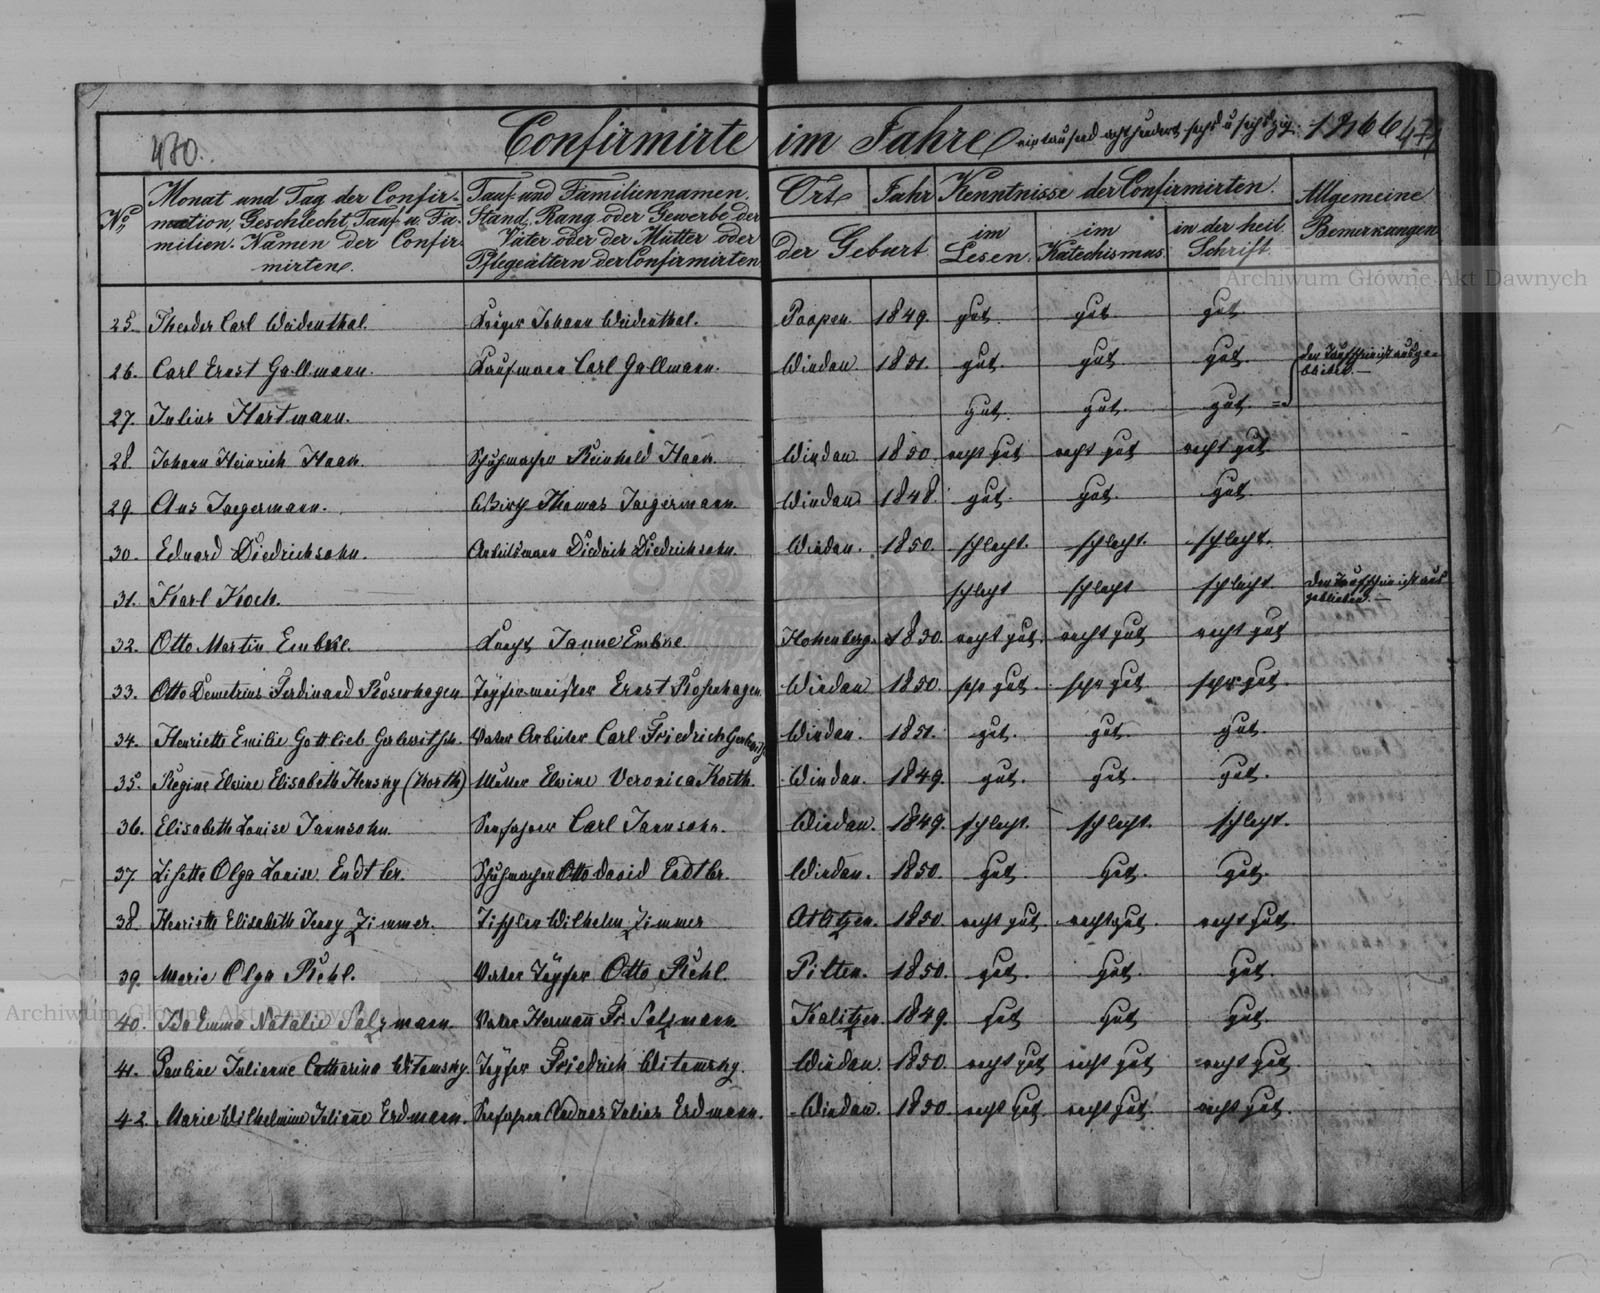 470.
Confirmirte im Jahre eintausend achthundert sechs u sechszig. 1866 471
No. Monat und Tag der Confir- mation, Geschlecht, Tauf u. Fa- milien-Namen der Confir- mirten.
Tauf- und Familiennamen. Stand, Rang oder Gewerbe der Väter oder der Mütter oder Pflegeältern der Confirmirten
Ort Jahr der Geburt.
Kenntnisse der Confirmirten. im Lesen. im Katechismus. in der heil. Schrift.
Allgemeine Bemerkungen
25. Theodor Carl Weidenthal. Krüger Johann Weidenthal. Poopen. 1849. gut. gut. gut.
26. Carl Ernst Gallmann. Kaufmann Carl Gallmann. Windau. 1851. gut. gut. gut. der Taufschein ist ausge- blieben.
27. Julius Hartmann. gut. gut. gut.
28. Johann Heinrich Haan. Schuhmacher Reinhold Haan. Windau. 1850. recht gut recht gut recht gut
29. Ans Jaegermann. Wirth Thomas Jaegermann. Windau 1848. gut. gut. gut.
30. Eduard Diedrichsohn. Arbeitsmann Diedrich Diedrichsohn. Windau. 1850. schlecht. schlecht. schlecht.
31. Karl Koch. schlecht schlecht schlecht. der Taufschein ist aus geblieben.
32. Otto Martin Embke. Knecht Janne Embke Hohenberg. 1850. recht gut. recht gut recht gut
33. Otto Demetrius Ferdinand Rosenhagen Töpfermeister Ernst Rosenhagen. Windau 1850. sehr gut. sehr gut. sehr gut.
34. Henriette Emilie Gottlieb Vater Arbeiter Carl Friedrich Windau. 1851. gut. gut. gut.
35. Regine Elwine Elisabeth Hensky (Korth) Mutter Elwine Veronica Korth. Windau. 1849. gut. gut. gut.
36. Elisabeth Louise Jannsohn. Seefahrer Carl Jannsohn. Windau. 1849. schlecht. schlecht. schlecht.
37. Lisette Olga Louise Endtler. Schuhmacher Otto David Endtler. Windau. 1850. gut. gut. gut.
38. Henriette Elisabeth Jenny Zimmer. Tischler Wilhelm Zimmer Atlitzen. 1850. recht gut. recht gut. recht gut.
39. Marie Olga Riehl. Vater Töpfer Otto Riehl. Pilten. 1850. gut. gut. gut.
40. Ida Emma Natalie Salzmann. Vater Hermann Fr. Salzmann. Kalitzen. 1849. gut gut gut.
41. Pauline Julianne Catharina Witomsky. Töpfer Friedrich Witomsky. Windau. 1850. recht gut recht gut recht gut.
42. Marie Wilhelmine Julianne Erdmann. Seefahrer Andreas Julius Erdmann. Windau. 1850. recht gut. recht gut. recht gut.
Archiwum Główne Akt Dawnych
Archiwum Główne Akt Dawnych